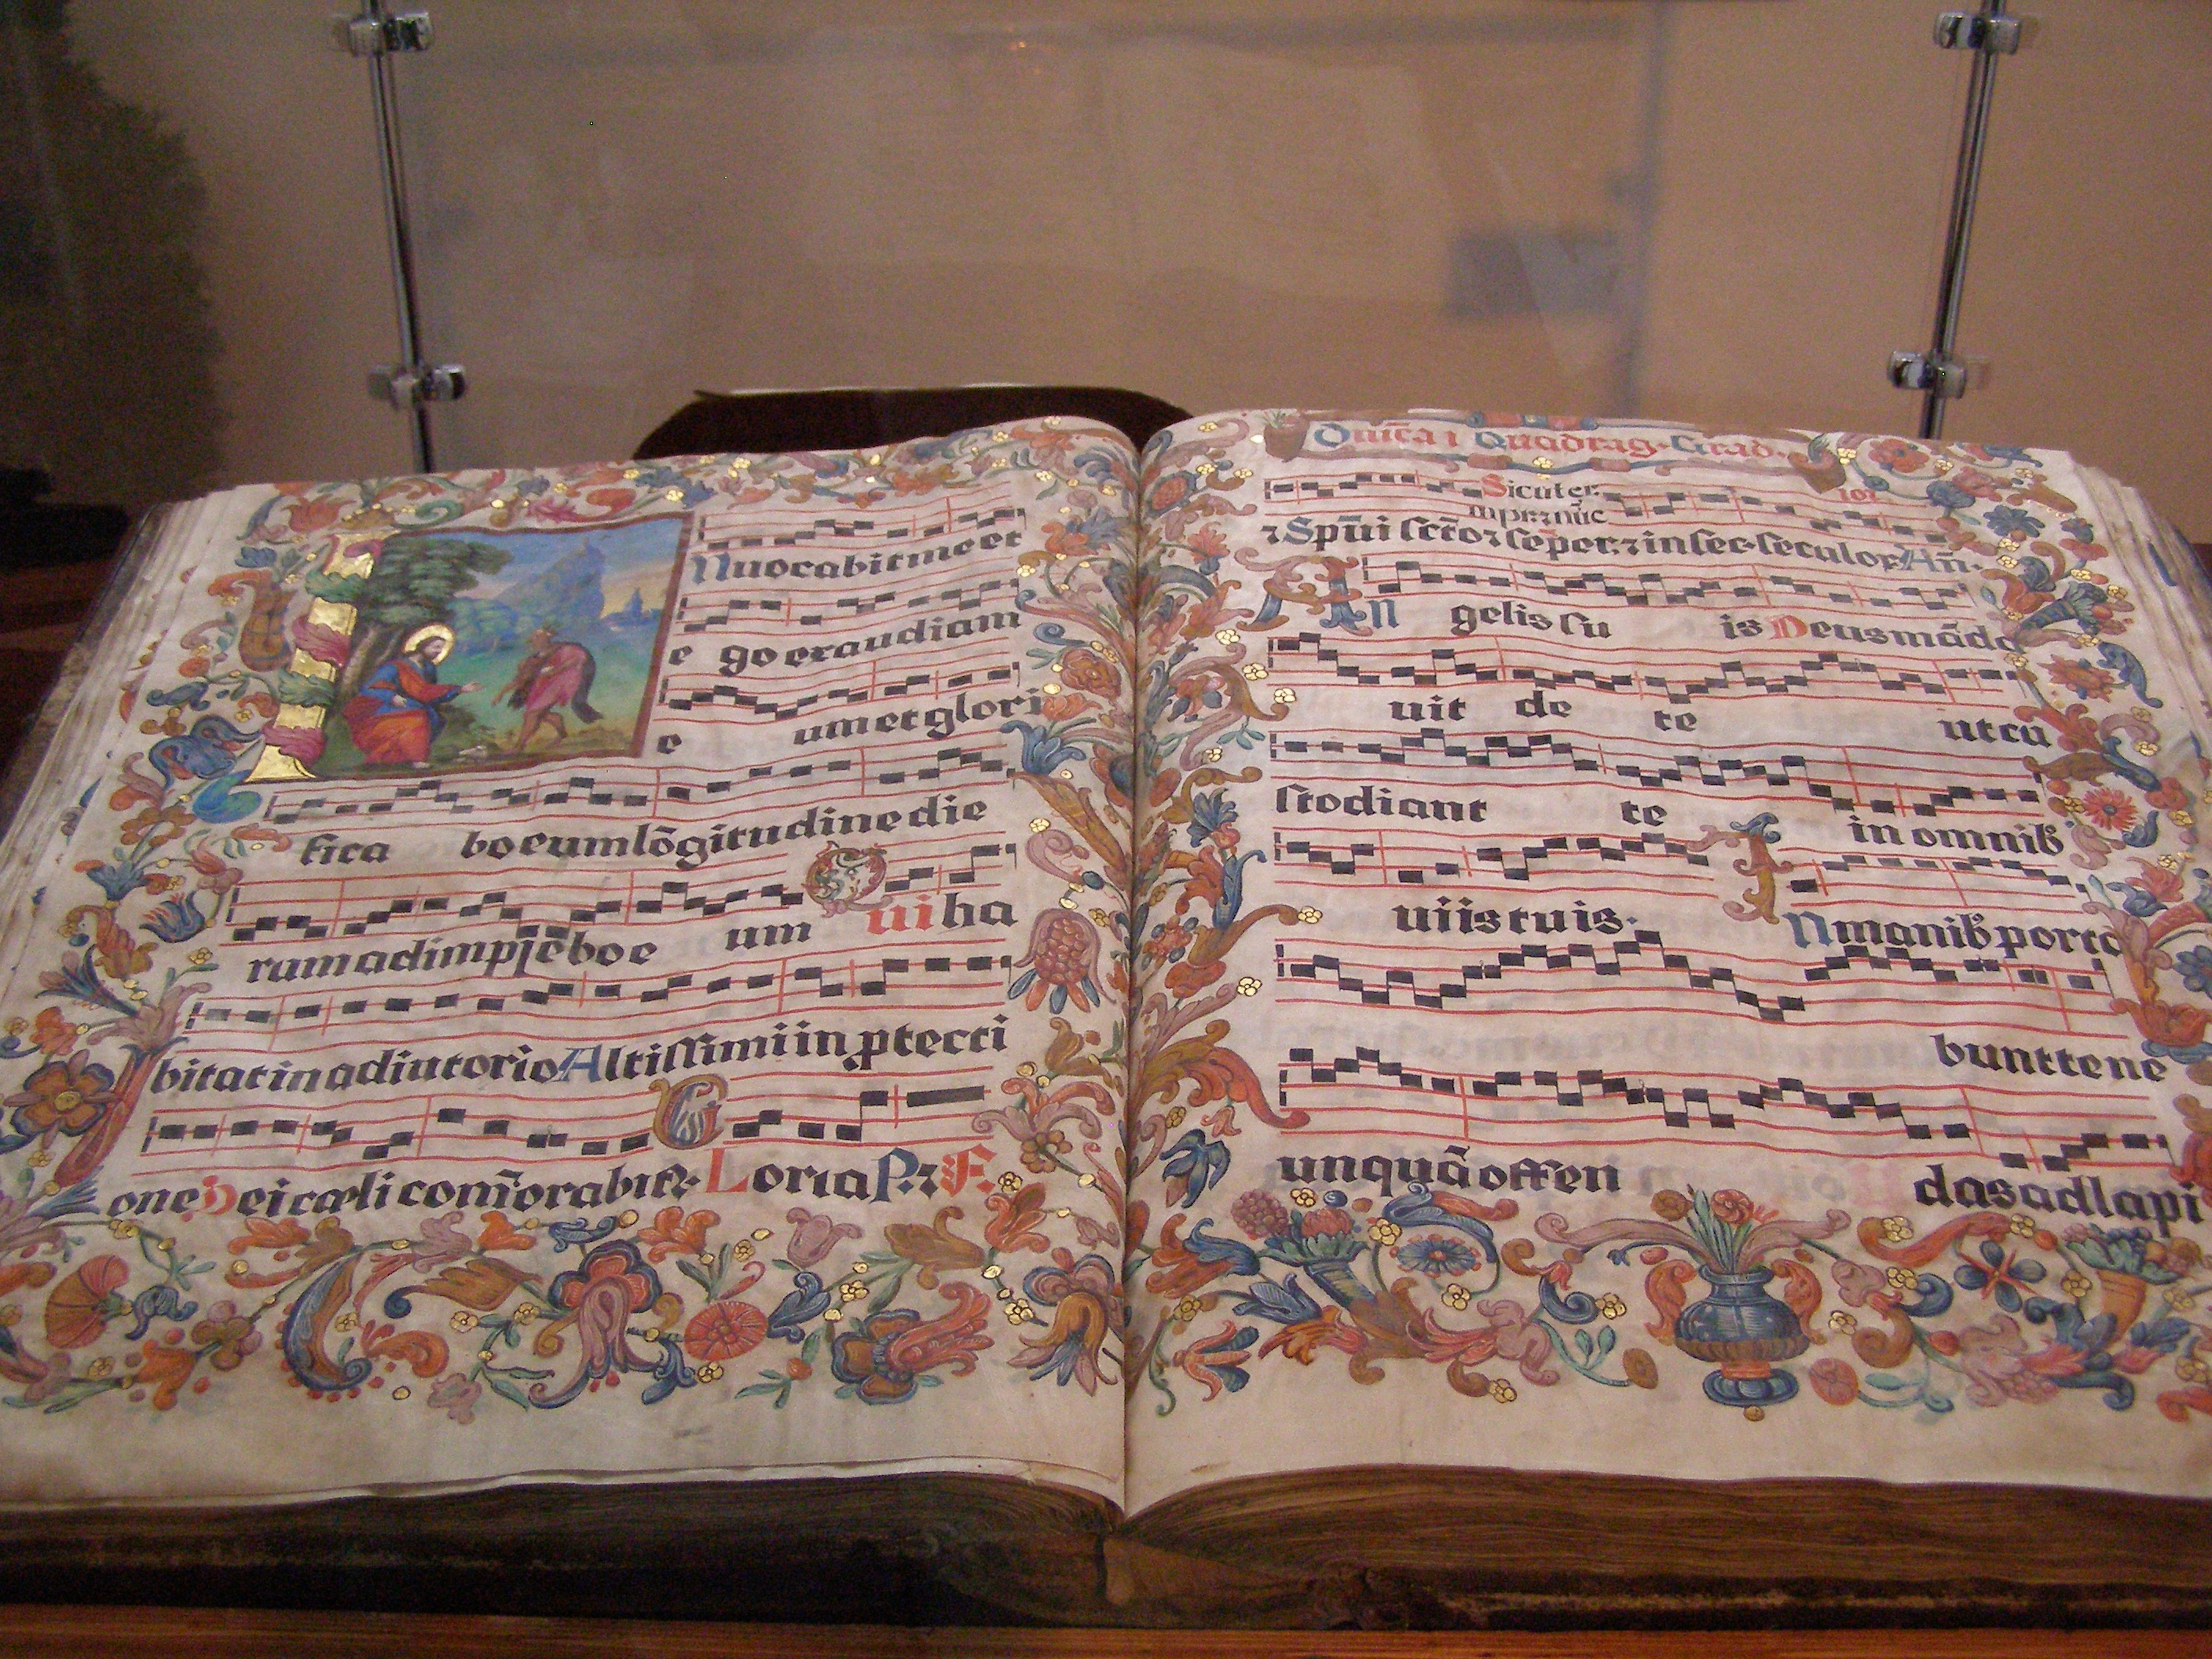 INuocabit me et
e go exaudiam
e um et glori
fica bo eum lōgitudine die
rum adimplebo e um Qui ha
bitat in adiutorio Altissimi in ꝓtecti
one Dei cæli com̄orabit᷑. Gloria P. ⁊ F.
Dnīca 1 Quadrag. Grad.
Sicut er
in pr. ⁊ nūc
⁊ Spūi scto ⁊ sēper. ⁊ in sec. seculor. Añ.
An gelis su is Deus māda
uit de te ut cu
stodiant te in omnib
uiis tuis. IN manib porta
bunt te ne
unquā offen das ad lapi